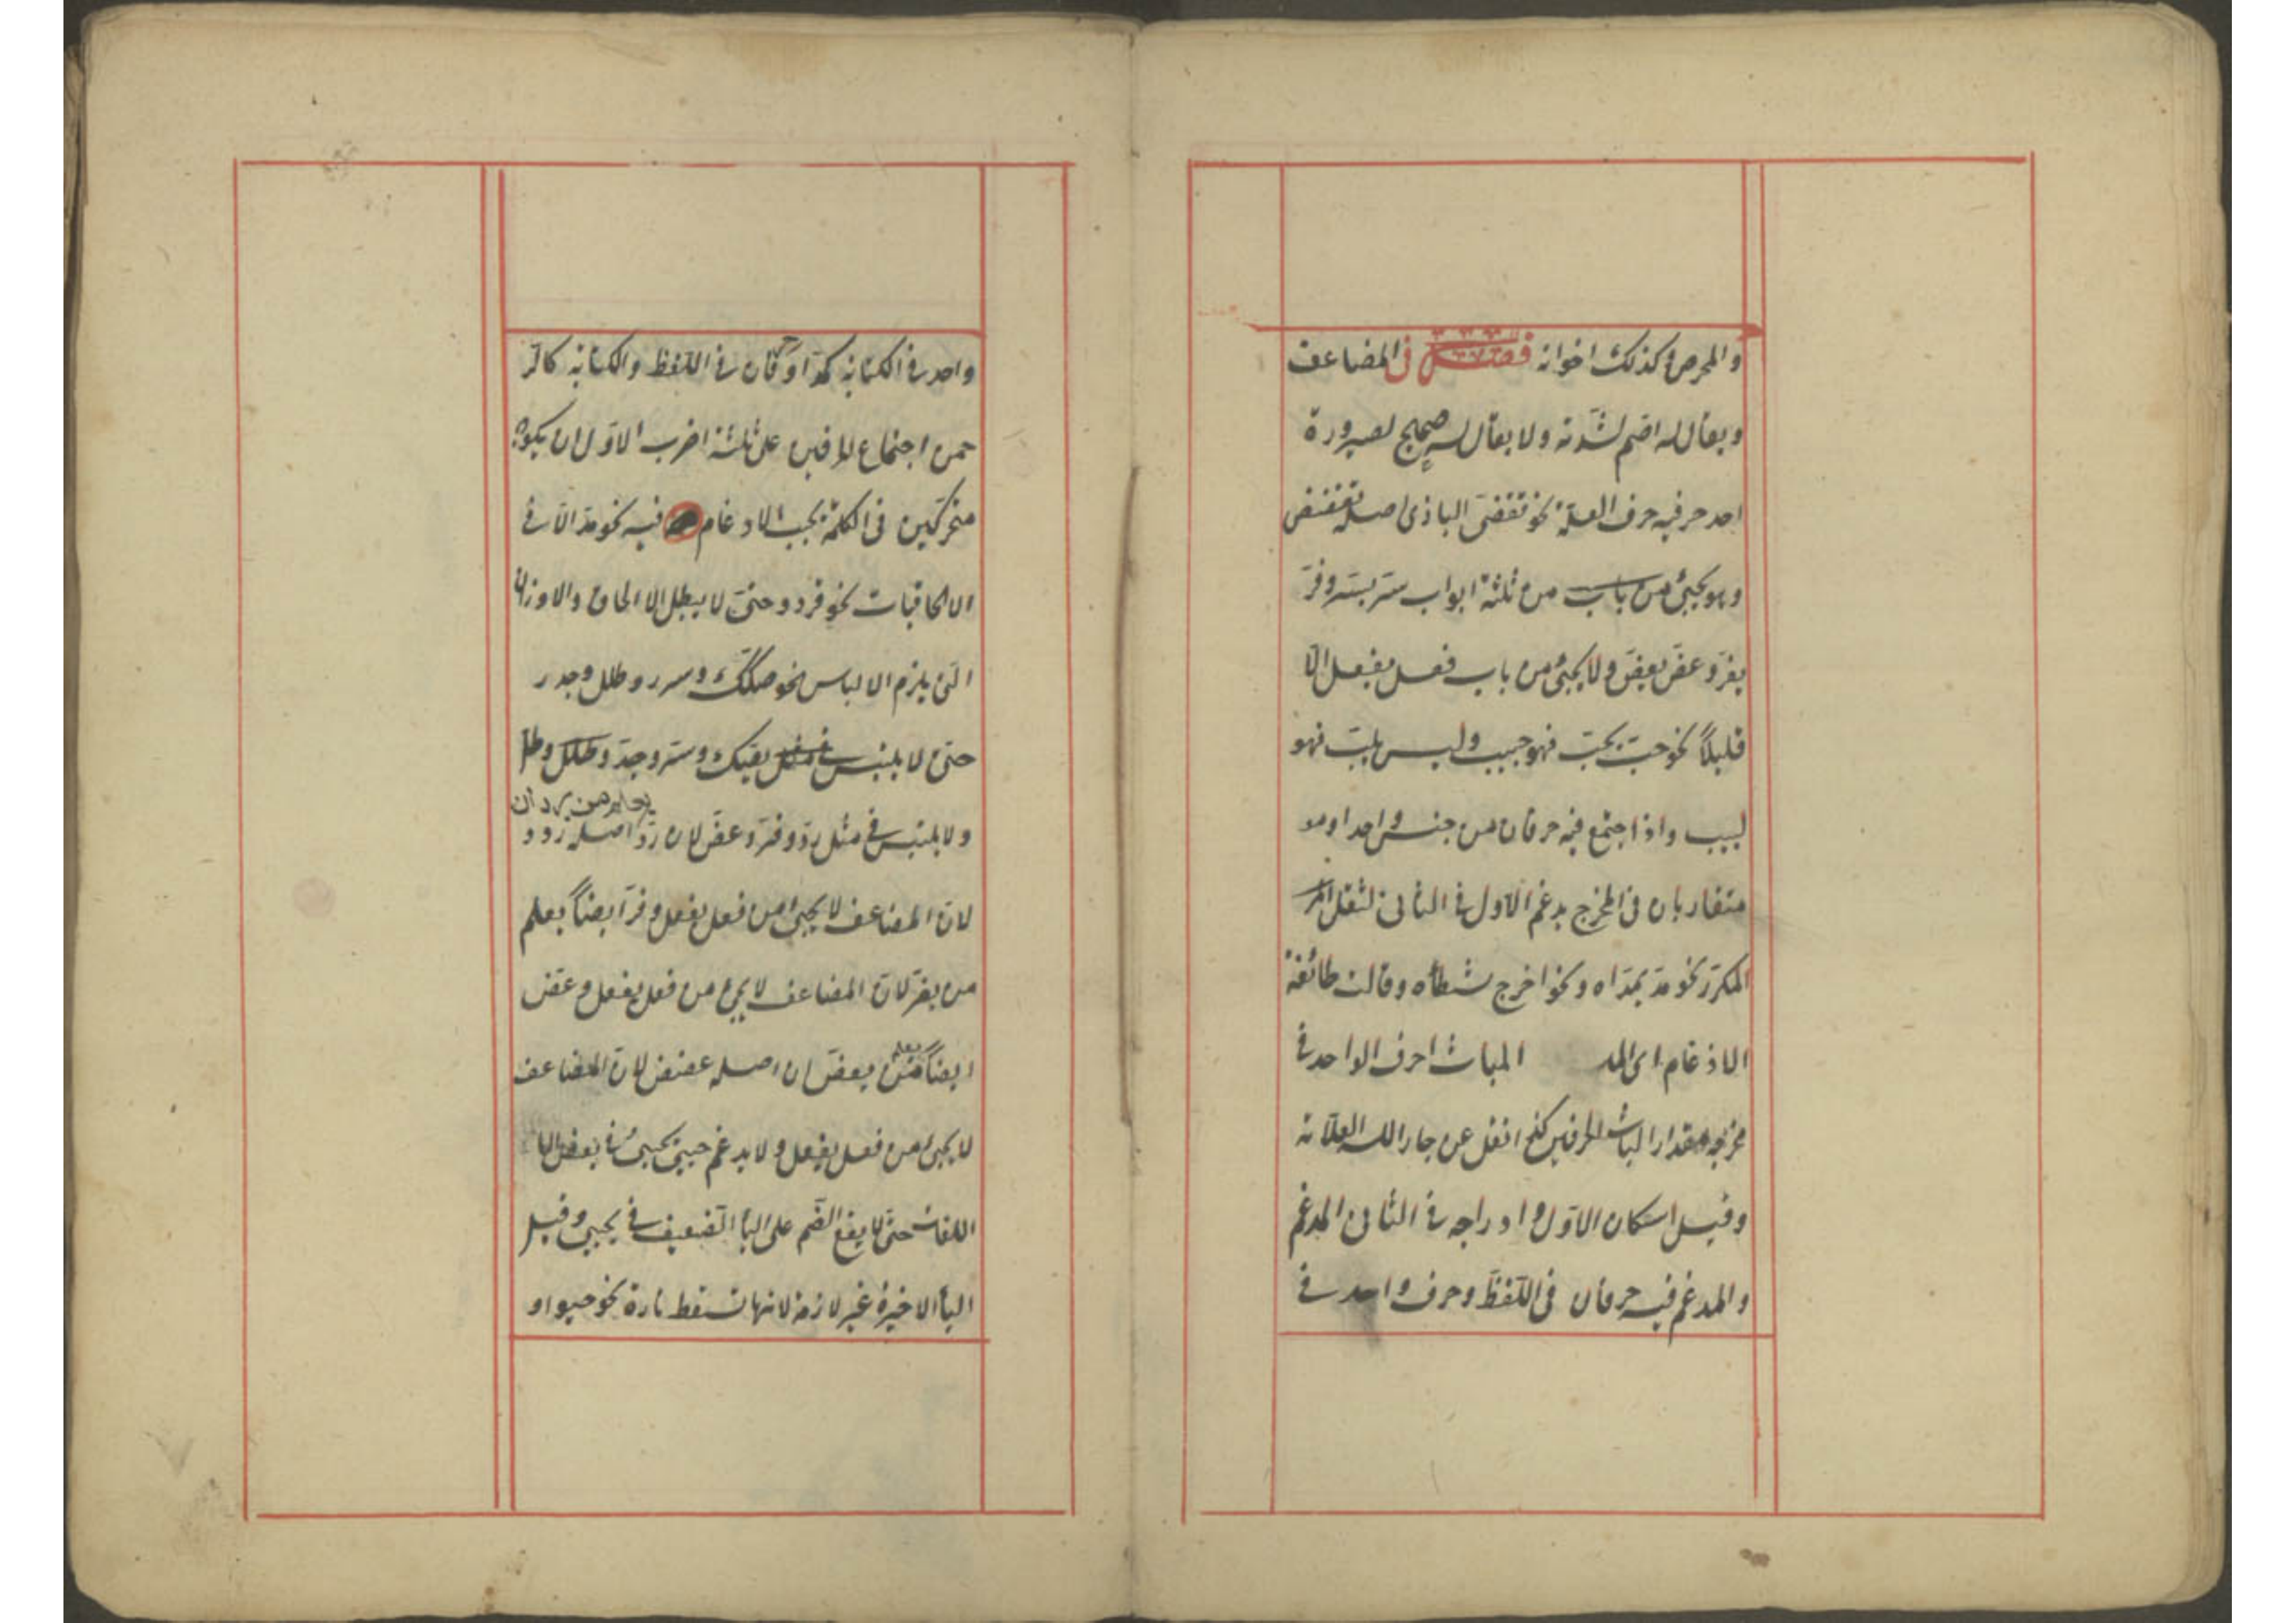 والمحرص وكذلك اخوانه فصل فى المضاعف
ويقال له اصم لشدته ولا يقال له صحيح لصيرورة
احد حرفيه حرف العلة نحو تقضى البازى اصله تقضض
وهو يجئ من باب من ثلثة ابواب ستر يستر وفرّ
يفرّ وعضّ يعضّ ولا يجئ من باب فعل يفعل الّا
قليلاً نحو حبّ يحبّ فهو حبيب وليس يلبّ فهو
لبيب واذا اجتمع فيه حرفان من جنس واحد او
متقاربان فى المخرج يدغم الاول فى الثانى لثقل
المكرّر نحو مدّ يمدّ اه ونحو اخرج شطأه وقالت طائفة
الادغام اى المد الباث احرف الواحد فى
مخرجه مقدار الباث الحرفين كذا نقل عن جار الله العلّامة
وقيل اسكان الاوّل وادراجه فى الثانى المدغم
والمدغم فيه حرفان فى اللّفظ وحرف واحد فى
واحد فى الكتابة او حرفان فى اللّفظ والكتابة كالر
حمن اجتماع الحرفين على ثلثة اضرب الاوّل ان يكونا
متحركين فى الكلمة يجب الادغام فيه نحو مدّ الّا فى
الالحاقيات نحو قردد حتى لا يبطل الالحاق والاوزان
التى يلزم الالباس نحو صكك وسرر وطلل وجدر
حتى لا يلتبس بصك وسر وجدّ وطلل وطلّ
ولا يلتبس فى مثل ردّ وفرّ وعضّ لان ردّ اصله ردد
لانّ المضاعف لا يجئ من فعل يفعل وفرّ ايضاً يعلم
من يفرّ لانّ المضاعف لا يجئ من فعل يفعل وعضّ
ايضاً يعلم من يعضّ ان اصله عضض لانّ المضاعف
لا يجئ من فعل يفعل ولا يدغم حيى يحيى فى بعض
اللغات حتى لا يقع الضّم على الياء الضّعيف فى يحيى وقيل
الياء الاخيرة غير لازمة لانها تسقط تارة نحو حيوا و